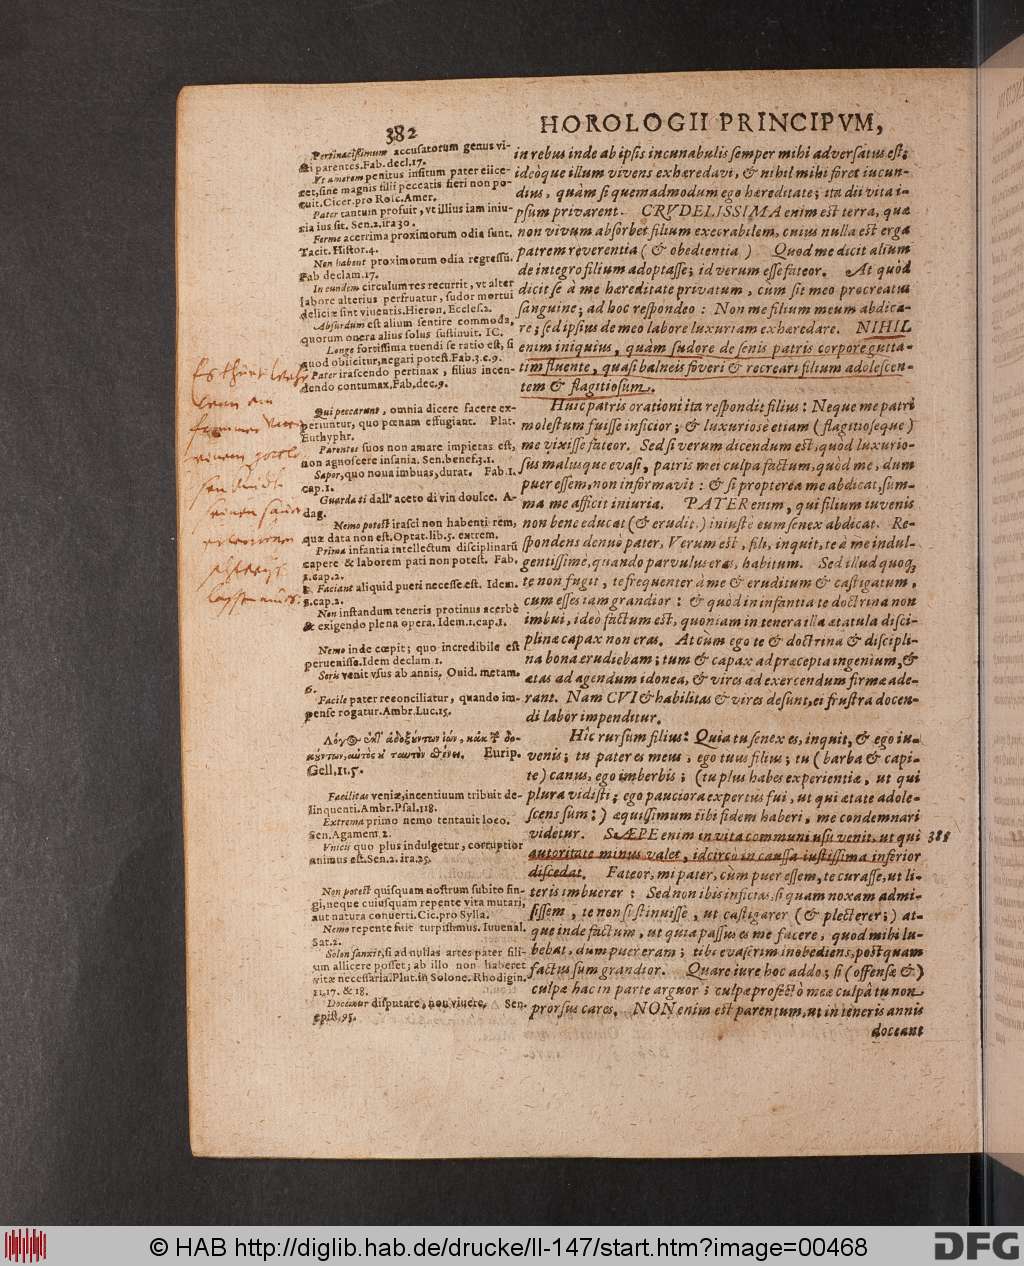 382
HOROLOGII PRINCIPVM,
Pertinacissimum accusatorum genus vi-
di parentes. Fab. decl. 17.
Vt amorem penitus insitum pater eiice-
ret, sine magnis filii peccatis fieri non po-
tuit. Cicer. pro Rosc. Amer.
Pater tantum profuit, vt illius iam iniu-
ria ius sit. Sen. 2. ira 30.
Ferme acerrima proximorum odia sunt.
Tacit. Histor. 4.
Non habent proximorum odia regressũ.
Fab declam. 17.
In eundem circulum res recurrit, vt alter
labore alterius perfruatur, sudor mortui
deliciæ sint viuentis. Hieron. Eccles. 2.
Absurdum est alium sentire commoda,
quorum onera alius solus sustinuit. IC.
Longe fortissima tuendi se ratio est, si
quod obiicitur, negari potest. Fab. 3. c. 9.
Pater irascendo pertinax, filius incen-
dendo contumax. Fab. dec. 9.
Qui peccarunt, omnia dicere facere ex-
periuntur, quo pœnam effugiant. Plat.
Euthyphr.
Parentes suos non amare impietas est,
non agnoscere insania. Sen. benef. 3. 1.
Sapor, quo noua imbuas, durat. Fab. 1.
cap. 1.
Guarda ti dall' aceto di vin doulce. A-
dag.
Nemo potest irasci non habenti rem,
quæ data non est. Optat. lib. 5. extrem.
Prima infantia intellectum disciplinarũ
capere & laborem pati non potest. Fab.
1. cap. 2.
Faciant aliquid pueri necesse est. Idem.
1. cap. 2.
Non instandum teneris protinus acerbè
& exigendo plena opera. Idem. 1. cap. 1.
Nemo inde cœpit; quo incredibile est
peruenisse. Idem declam 1.
Seris venit vsus ab annis. Ouid. metam.
6.
Facile pater reconciliatur, quando im-
pense rogatur. Ambr. Luc. 15.
Eurip.
Gell. 11. 5.
Facilitas veniæ, incentiuum tribuit de-
linquenti. Ambr. Psal. 118.
Extrema primo nemo tentauit loco.
Sen. Agamem. 2.
Vnicis quo plus indulgetur, corruptior
animus est. Sen. 2. ira. 25.
Non potest quisquam nostrum subito fin-
gi, neque cuiusquam repente vita mutari,
aut natura conuerti. Cic. pro Sylla.
Nemo repente fuit turpissimus. Iuuenal.
Sat. 2.
Solon sanxit, si ad nullas artes pater fili-
um allicere posset; ab illo non haberet
vitæ necessaria. Plut. in Solone. Rhodigin.
11, 17. & 18.
Docemur disputare, non viuere. Sen.
epist. 95.
in rebus inde ab ipsis incunabulis semper mihi adversatus est;
ideóque illum vivens exhæredavi, & nihil mihi foret iucun-
dius, quàm si quemadmodum ego hereditate; ita dii vita i-
psum privarent. CRVDELISSIMA enim est terra, quæ
non vivum absorbet filium execrabilem, cuius nulla est erga
patrem reverentia (& obedientia) Quod me dicit alium
de integro filium adoptasse; id verum esse fateor. At quòd
dicit se à me hæreditate privatum, cùm sit meo procreatus
sanguine; ad hoc respondeo: Non me filium meum abdica-
re; sed ipsius de meo labore luxuriam exhæredare. NIHIL
enim iniquius, quàm sudore de senis patris corpore gutta-
tim fluente, quasi balneis foveri & recreari filium adolescen-
tem & flagitiosum.
Huic patris orationi ita respondit filius: Neque me patri
molestum fuisse inficior; & luxuriose etiam (flagitioseque)
me vixisse fateor. Sed si verum dicendum est, quòd luxurio-
sus malusque evasi, patris mei culpa factum, quòd me, dum
puer essem, non informavit: & si propterea me abdicat, sum-
ma me afficit iniuria. PATER enim, qui filium iuvenis
non bene educat (& erudit.) iniustè eum senex abdicat. Re-
spondens denuò pater, Verum est, fili, inquit, te à me indul-
gentissimè, quando parvulus eras, habitum. Sed illud quoq;
te non fugit, te frequenter à me & eruditum & castigatum,
cum esses iam grandior: & quòd in infantia te doctrina non
imbui, ideò factum est, quoniam in tenera illa ætatula disci-
plinæ capax non eras. At cùm ego te & doctrina & discipli-
na bona erudiebam; tum & capax ad præcepta ingenium, &
ætas ad agendum idonea, & vires ad exercendum firmæ ade-
rant. Nam CVI & habilitas & vires desunt, ei frustra docen-
di labor impenditur.
Hic rursum filius: Quia tu senex es, inquit, & ego iu-
venis; tu pater es meus, ego tuus filius; tu (barba & capi-
te) canus, ego imberbis; (tu plus habes experientiæ, ut qui
plura vidisti; ego pauciora expertus fui, ut qui ætate adole-
scens sum:) æquissimum tibi fidem haberi, me condemnari
videtur. SÆPE enim in vita communi usu venit, ut qui 388
autoritate minus valet, idcirco in caussa iustissima inferior
discedat. Fateor, mi pater, cùm puer essem, te curasse, ut li-
teris imbuerer: Sed non ibis infictas, si quam noxam admi-
sissem, te non sistinuisse, ut castigarer (& plecterer;) at-
que inde factum, ut quia passus es me facere, quod mihi lu-
bebat, dum puer eram; tibi evaserim inobediens, postquam
factus sum grandior. Quare iure hoc addo; si (offensæ &)
culpæ hac in parte arguor; culpæ profectò meæ culpâ tu non
prorsus cares. NON enim est parentum, ut in teneris annis
doceant
© HAB http://diglib.hab.de/drucke/li-147/start.htm?image=00468
DFG